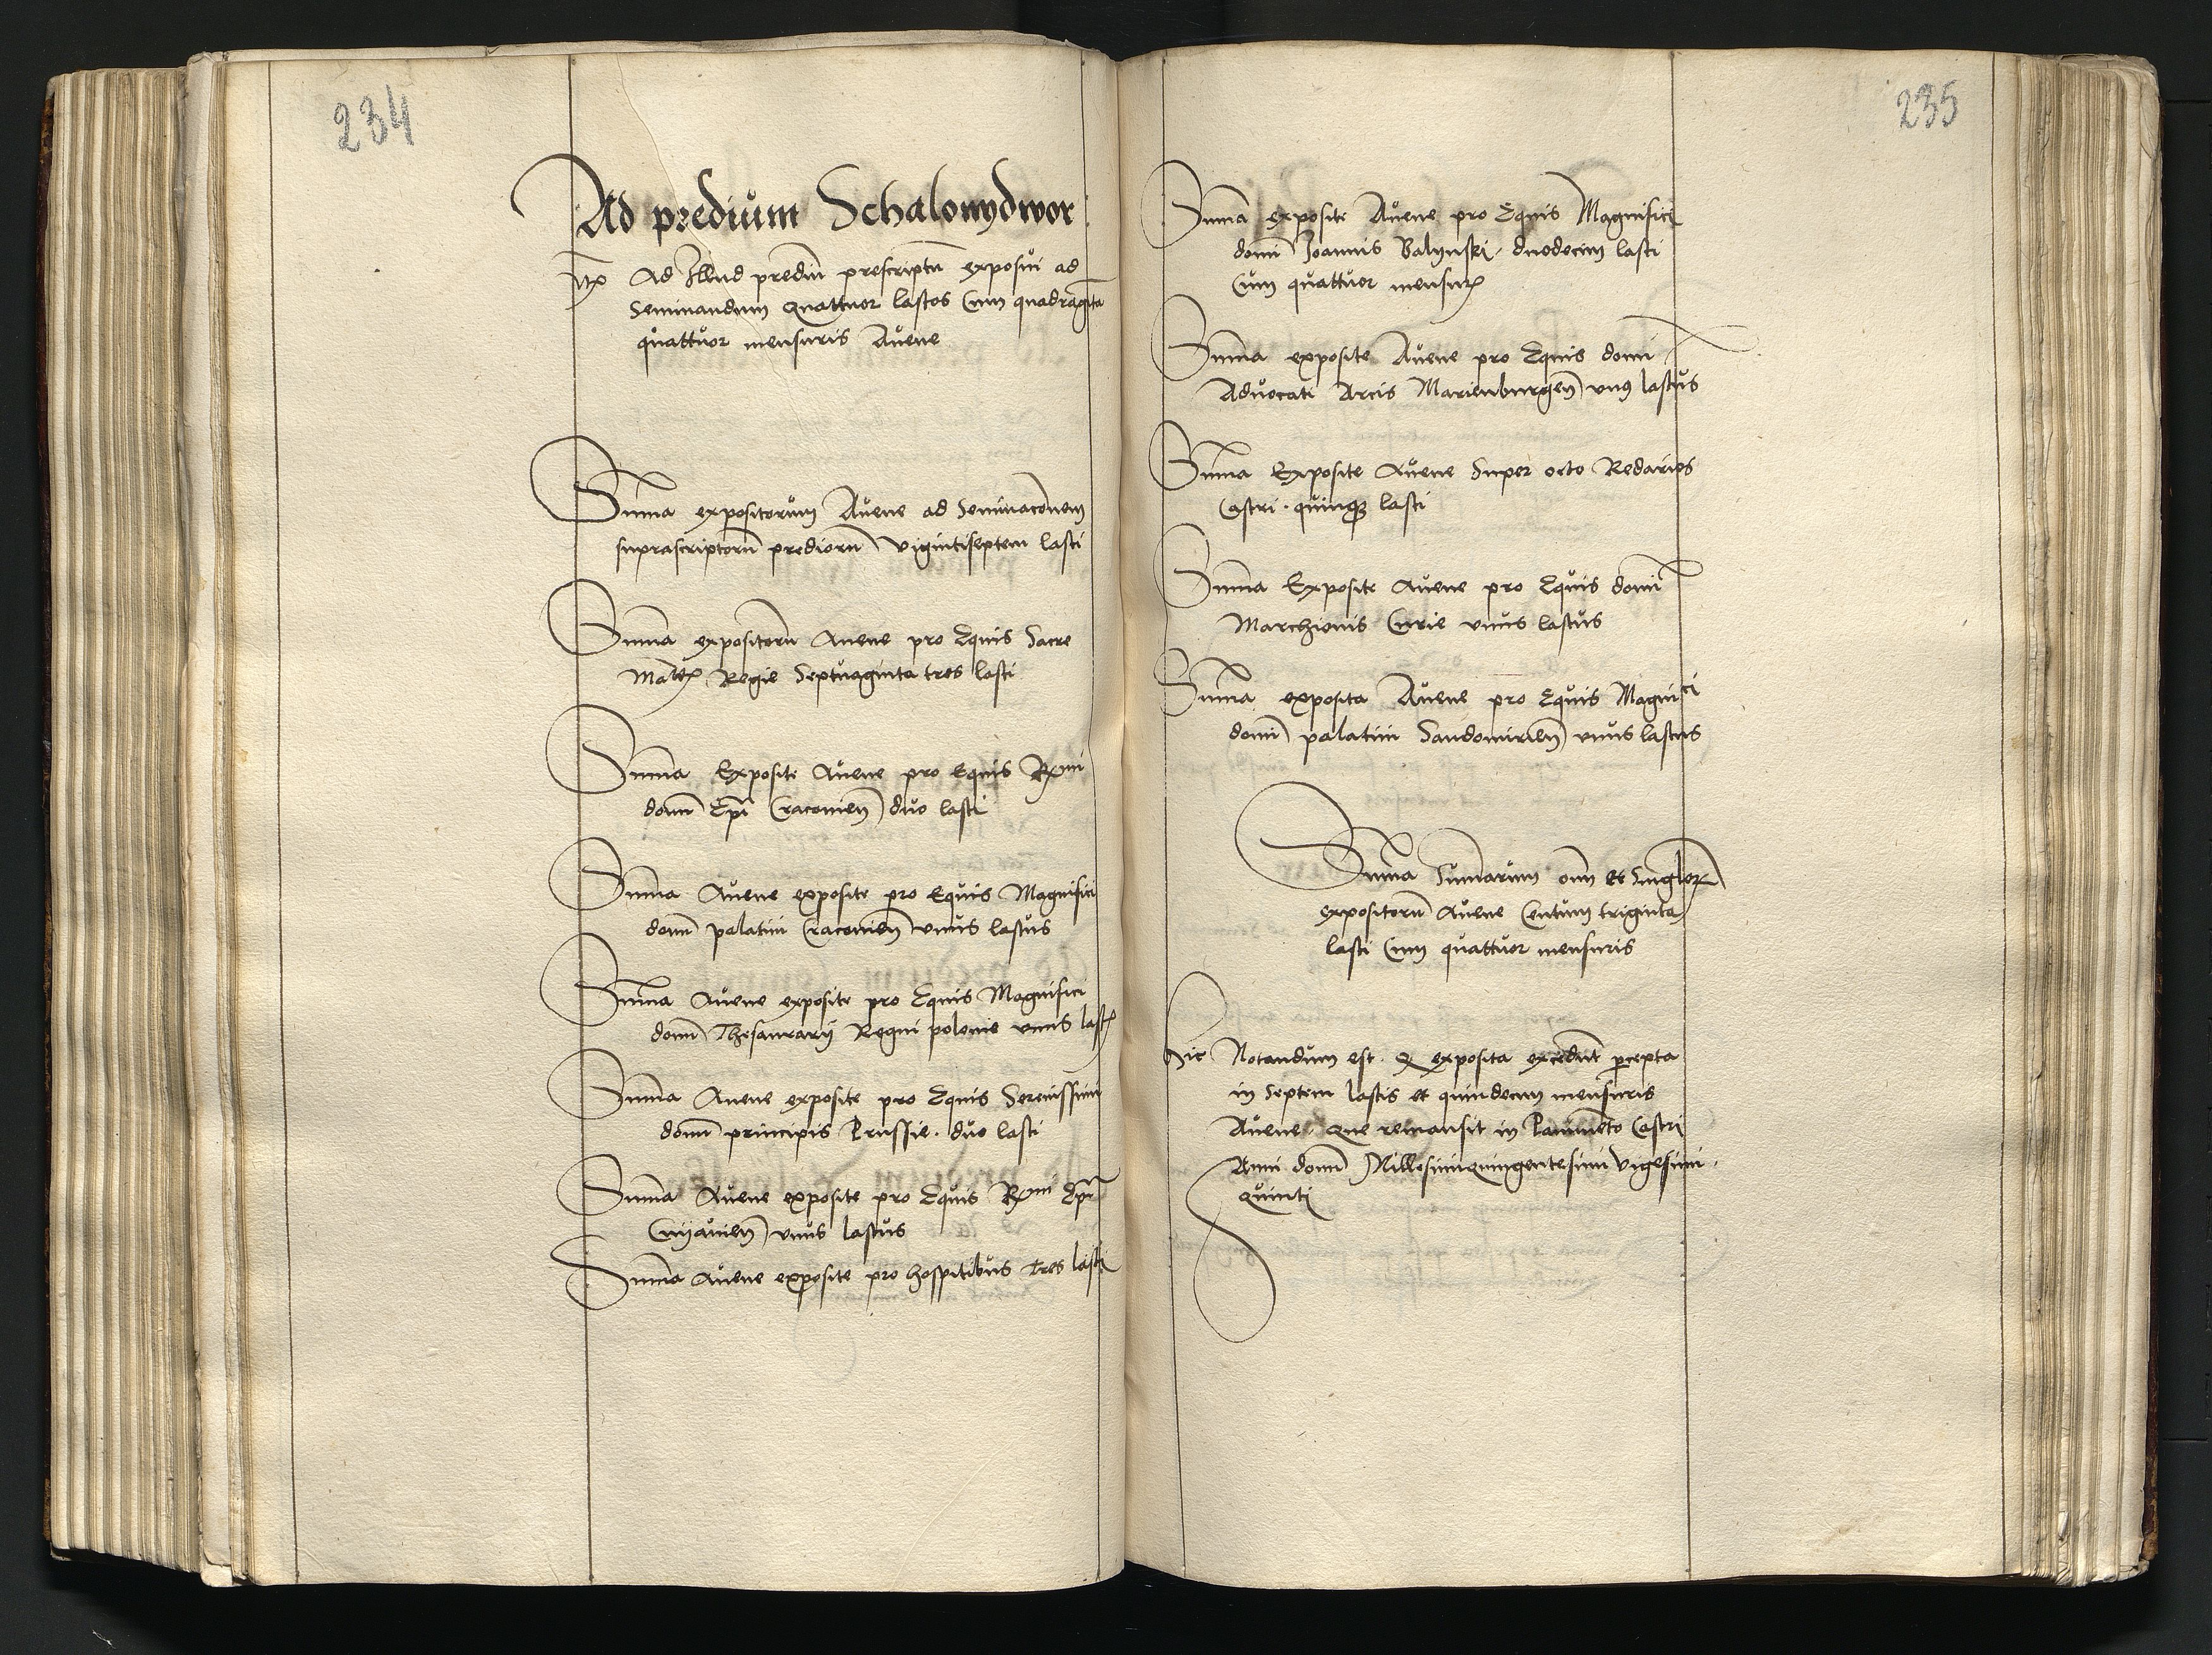 234
Ad predium Schalowydwor
Itẽ Ad Illud prediũ prescriptũ exposui ad
Seminandum quattuor lastos Cum quadraginta
quattuor mensuris Avene
Suma expositorum Avene ad seminaconem
suprascriptorũ prediorũ vigintiseptem lasti
Suma expositorũ Avene pro Equis Sacre
Matis Regie Septuaginta tres lasti
Suma Exposite Avene pro Equis Rmi
domĩ Epĩ Cracovieñ duo lasti
Suma Avene exposite pro Equis Magnifici
domĩ palatini Cracovieñ unus lastus
Suma Avene exposite pro Equis Magnifici
domĩ Thesaurarij Regni polonie unus last9
Suma Avene exposite pro Equis Serenissimi
domĩ principis Prussie . duo lasti
Suma Avene exposite pro Equis Rmi Epĩ
Cuyavieñ unus lastus
Suma Avene exposite pro hospitibus tres lasti
235
Suma exposite Avene pro Equis Magnifici
domĩ Joannis Balynski . duodecim lasti
Cum quattuor mensuris
Suma exposite Avene pro Equis domĩ
Advocati Arcis Marienburgeñ un9 lastus
Suma Exposite Avene Super octo Redarios
Castri . quinque lasti
Suma Exposite Avene pro Equis domĩ
Marchionis Curie unus lastus
Suma exposita Avene pro Equis Magnici
domĩ palatini Sandomirieñ unus lastus
Suma Sumarum oim et Singlorum
expositorũ Avene Centum triginta
lasti Cum quattuor mensuris
Hic Notandum est . q exposita excedũt pcepta
in septem lastis et quindecim mensuris
Avene . que remansit in Pavimẽto Castri
Anni domĩ Millesimiquingentesimi vigesimi .
quinti